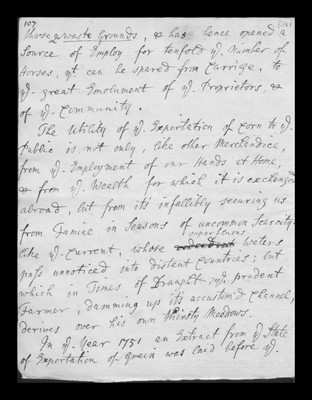 107
those waste Grounds, & has hence opened a
Source of Employ for tenfold yͤ. Number of
Horses, yͭ. can be spared from Carriage, to
yͤ. great Emolument of yͤ. Proprietors, &
of yͤ. Community.
The Utility of yͤ. Exportation of Corn to yͤ.
Public is not only, like other Merchandice,
from yͤ. Employment of our Hands at Home,
& from yͤ. Wealth for which it is exchanged
abroad, but from its infallibly securing us
from Famine in Seasons of uncommon Scarcity.
superfluous
like yͤ. Current, whose Waters
pass unnoticed into distant Countries; but
which in Times of Draught yͤ. prudent
Farmer, damming up its accustom'd Channel,
derives over his own thirsty Meadows.
In yͤ. Year 1751 an Extract from yͤ State
of Exportation of Grain was laid before yͤ.